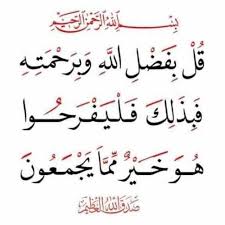 بِسْمِ اللَّهِ الرَّحْمَنِ الرَّحِيمِ
قُلْ بِفَضْلِ اللَّهِ وَبِرَحْمَتِهِ
فَبِذَلِكَ فَلْيَفْرَحُوا
هُوَ خَيْرٌ مِّمَّا يَجْمَعُونَ
صدق الله العظيم